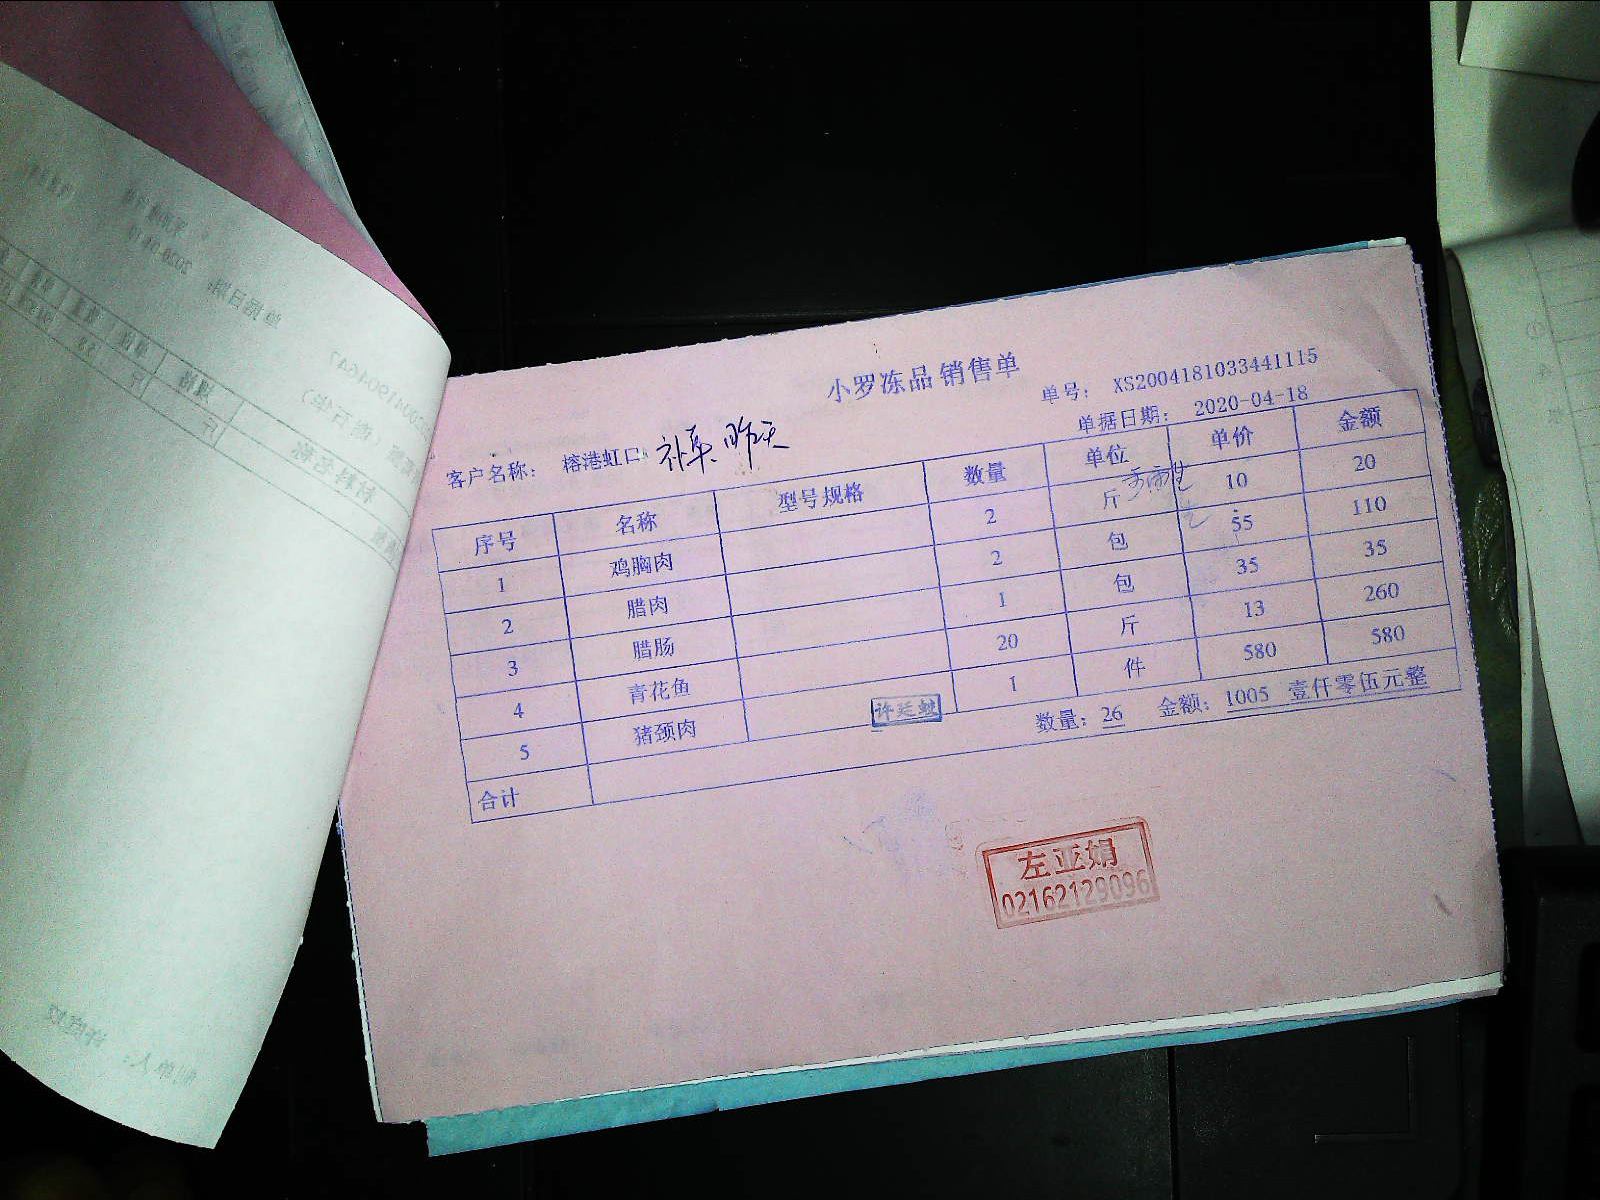 小罗冻品 销售单
单号： XS2004181033441115
客户名称： 榕港虹口 补单 昨天
单据日期： 2020-04-18
序号 名称 型号规格 数量 单位 单价 金额
1 鸡胸肉 2 斤 10 20
2 腊肉 2 包 55 110
3 腊肠 1 包 35 35
4 青花鱼 20 斤 13 260
5 猪颈肉 1 件 580 580
合计 数量：26 金额：1005 壹仟零伍元整
左亚娟
02162129096